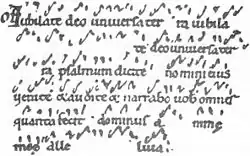 Iubilate deo universa ter ra iubila
te deo universa ter
ra psalmum dicite nomini eius
venite & audite & narrabo vob omnis
quanta fecit dominus
mee alle luia